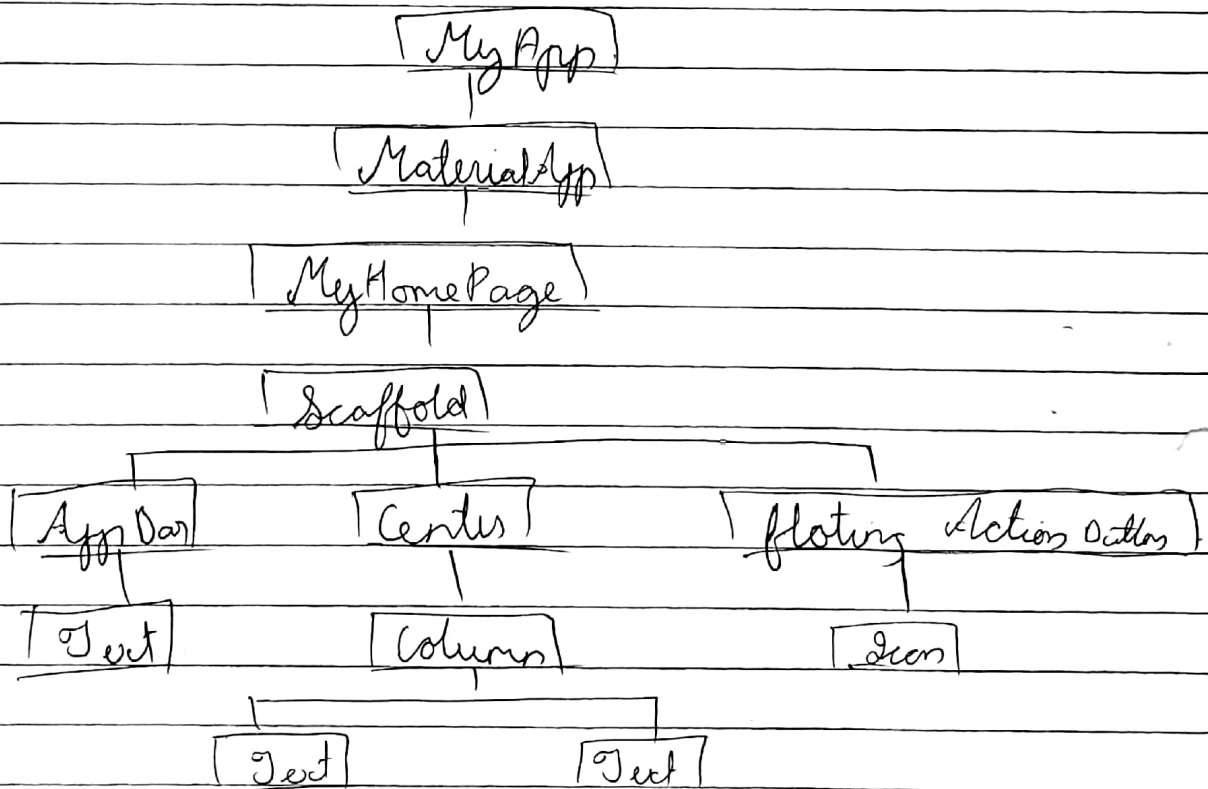 MyApp
MaterialApp
MyHomePage
Scaffold
AppBar Center floting Action Button
Text Column Icon
Text Text